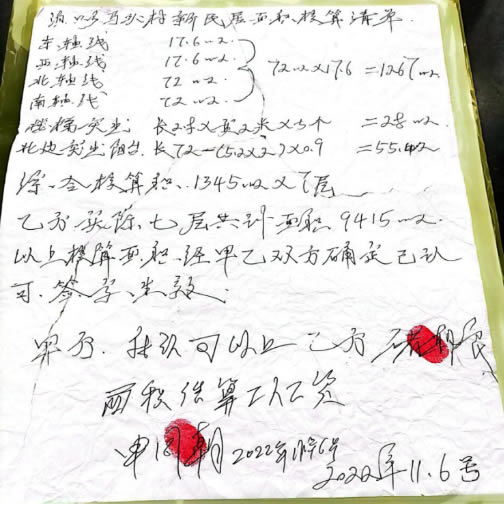 村新民居面积核算清单
东轴线 17.6m2.
西轴线 17.6m2. 72m2×17.6 =1267m2
北轴线 72m2.
南轴线 72m2.
楼梯突出 长 米×宽2米× 个 =28m2.
北边突出阳台. 长72-(5.2×2)×0.9 =55.4m2
综合核算积 1345m2×7层
乙方实际七层共计面积9415m2.
以上核算面积经甲乙双方确定已认
可.签字生效.
甲方.我认可以上乙方
面积结算工人工资
申 朝 2022年11月6号
2022年11.6号